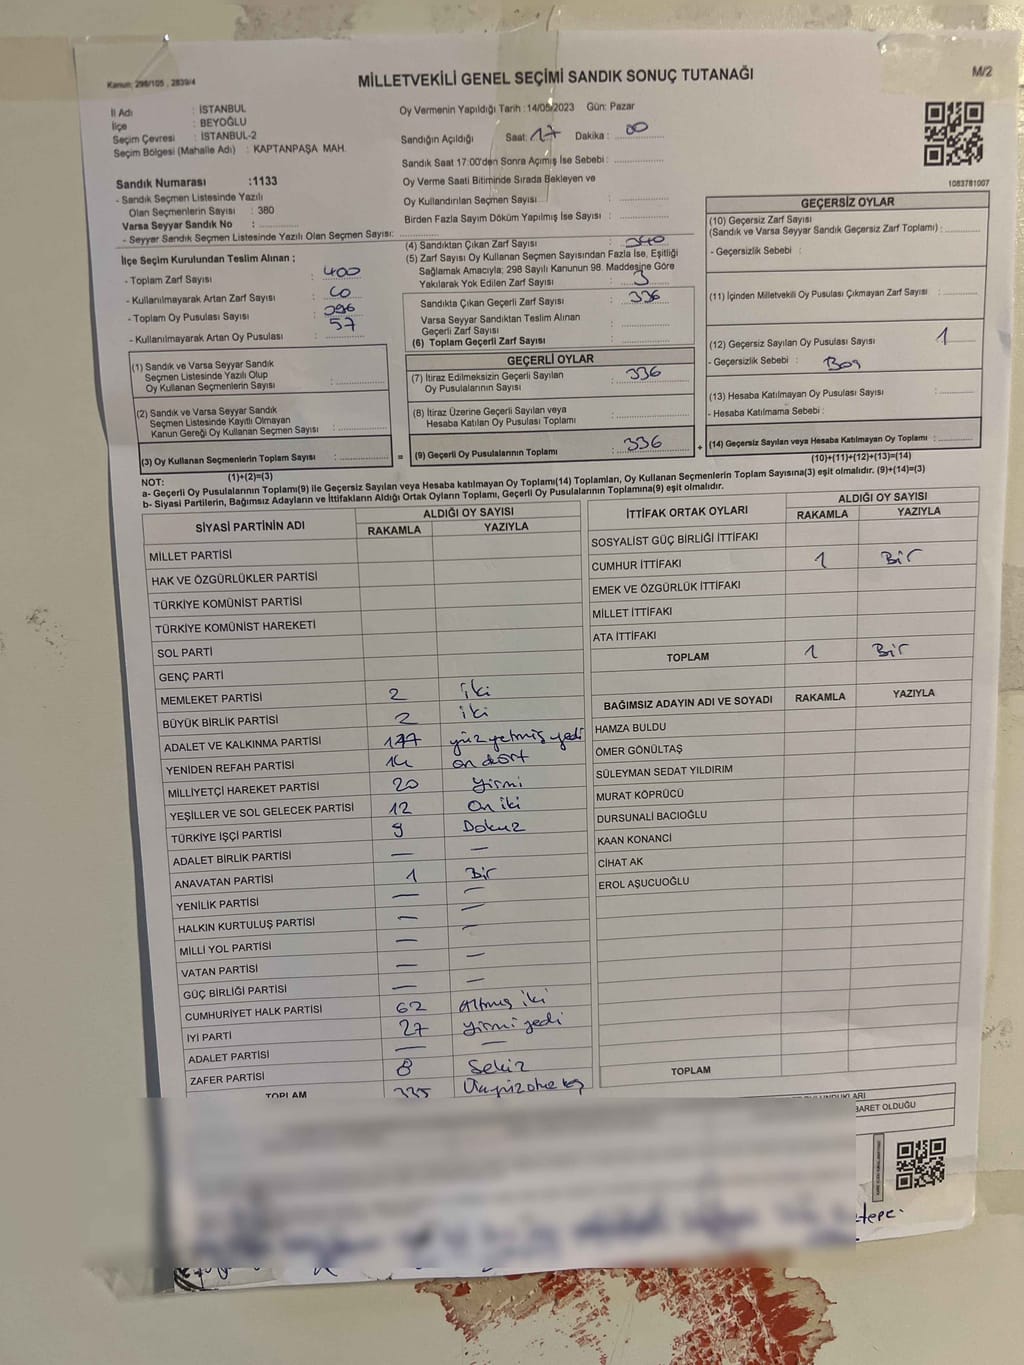 Kanun: 298/105 , 2839/4
MİLLETVEKİLİ GENEL SEÇİMİ SANDIK SONUÇ TUTANAĞI
M/2
İl Adı : İSTANBUL
İlçe : BEYOĞLU
Seçim Çevresi : İSTANBUL-2
Seçim Bölgesi (Mahalle Adı) : KAPTANPAŞA MAH.
Sandık Numarası :1133
- Sandık Seçmen Listesinde Yazılı
Olan Seçmenlerin Sayısı : 380
Varsa Seyyar Sandık No :
- Seyyar Sandık Seçmen Listesinde Yazılı Olan Seçmen Sayısı:
İlçe Seçim Kurulundan Teslim Alınan ;
- Toplam Zarf Sayısı : 400
- Kullanılmayarak Artan Zarf Sayısı : 60
- Toplam Oy Pusulası Sayısı :
- Kullanılmayarak Artan Oy Pusulası : 57
(1) Sandık ve Varsa Seyyar Sandık
Seçmen Listesinde Yazılı Olup
Oy Kullanan Seçmenlerin Sayısı :
(2) Sandık ve Varsa Seyyar Sandık
Seçmen Listesinde Kayıtlı Olmayan
Kanun Gereği Oy Kullanan Seçmen Sayısı :
(3) Oy Kullanan Seçmenlerin Toplam Sayısı :
(1)+(2)=(3)
Oy Vermenin Yapıldığı Tarih :14/05/2023 Gün: Pazar
Sandığın Açıldığı Saat: 17 Dakika : 00
Sandık Saat 17:00'den Sonra Açımış İse Sebebi :
Oy Verme Saati Bitiminde Sırada Bekleyen ve
Oy Kullandırılan Seçmen Sayısı :
Birden Fazla Sayım Döküm Yapılmış İse Sayısı :
(4) Sandıktan Çıkan Zarf Sayısı : 340
(5) Zarf Sayısı Oy Kullanan Seçmen Sayısından Fazla İse, Eşitliği
Sağlamak Amacıyla; 298 Sayılı Kanunun 98. Maddesine Göre
Yakılarak Yok Edilen Zarf Sayısı : 3
Sandıkta Çıkan Geçerli Zarf Sayısı : 336
Varsa Seyyar Sandıktan Teslim Alınan
Geçerli Zarf Sayısı :
(6) Toplam Geçerli Zarf Sayısı :
GEÇERLİ OYLAR
(7) İtiraz Edilmeksizin Geçerli Sayılan
Oy Pusulalarının Sayısı : 336
(8) İtiraz Üzerine Geçerli Sayılan veya
Hesaba Katılan Oy Pusulası Toplamı :
= (9) Geçerli Oy Pusulalarının Toplamı : 336 +
1083781007
GEÇERSİZ OYLAR
(10) Geçersiz Zarf Sayısı
(Sandık ve Varsa Seyyar Sandık Geçersiz Zarf Toplamı) :
- Geçersizlik Sebebi :
(11) İçinden Milletvekili Oy Pusulası Çıkmayan Zarf Sayısı :
(12) Geçersiz Sayılan Oy Pusulası Sayısı : 1
- Geçersizlik Sebebi : Boş
(13) Hesaba Katılmayan Oy Pusulası Sayısı :
- Hesaba Katılmama Sebebi :
(14) Geçersiz Sayılan veya Hesaba Katılmayan Oy Toplamı :
(10)+(11)+(12)+(13)=(14)
NOT:
a- Geçerli Oy Pusulalarının Toplamı(9) ile Geçersiz Sayılan veya Hesaba katılmayan Oy Toplamı(14) Toplamları, Oy Kullanan Seçmenlerin Toplam Sayısına(3) eşit olmalıdır. (9)+(14)=(3)
b- Siyasi Partilerin, Bağımsız Adayların ve İttifakların Aldığı Ortak Oyların Toplamı, Geçerli Oy Pusulalarının Toplamına(9) eşit olmalıdır.
SİYASİ PARTİNİN ADI ALDIĞI OY SAYISI
RAKAMLA YAZIYLA
MİLLET PARTİSİ
HAK VE ÖZGÜRLÜKLER PARTİSİ
TÜRKİYE KOMÜNİST PARTİSİ
TÜRKİYE KOMÜNİST HAREKETİ
SOL PARTİ
GENÇ PARTİ
MEMLEKET PARTİSİ 2 iki
BÜYÜK BİRLİK PARTİSİ 2 iki
ADALET VE KALKINMA PARTİSİ 177 yüz yetmiş yedi
YENİDEN REFAH PARTİSİ 14 on dört
MİLLİYETÇİ HAREKET PARTİSİ 20 yirmi
YEŞİLLER VE SOL GELECEK PARTİSİ 12 On iki
TÜRKİYE İŞÇİ PARTİSİ 9 Dokuz
ADALET BİRLİK PARTİSİ — —
ANAVATAN PARTİSİ 1 Bir
YENİLİK PARTİSİ — —
HALKIN KURTULUŞ PARTİSİ — —
MİLLİ YOL PARTİSİ — —
VATAN PARTİSİ — —
GÜÇ BİRLİĞİ PARTİSİ — —
CUMHURİYET HALK PARTİSİ 62 Altmış iki
İYİ PARTİ 27 yirmi yedi
ADALET PARTİSİ — —
ZAFER PARTİSİ 8 Sekiz
TOPLAM 335
İTTİFAK ORTAK OYLARI ALDIĞI OY SAYISI
RAKAMLA YAZIYLA
SOSYALİST GÜÇ BİRLİĞİ İTTİFAKI
CUMHUR İTTİFAKI 1 Bir
EMEK VE ÖZGÜRLÜK İTTİFAKI
MİLLET İTTİFAKI
ATA İTTİFAKI
TOPLAM 1 Bir
BAĞIMSIZ ADAYIN ADI VE SOYADI RAKAMLA YAZIYLA
HAMZA BULDU
ÖMER GÖNÜLTAŞ
SÜLEYMAN SEDAT YILDIRIM
MURAT KÖPRÜCÜ
DURSUNALİ BACIOĞLU
KAAN KONANCİ
CİHAT AK
EROL AŞUCUOĞLU
TOPLAM
BARET OLDUĞU